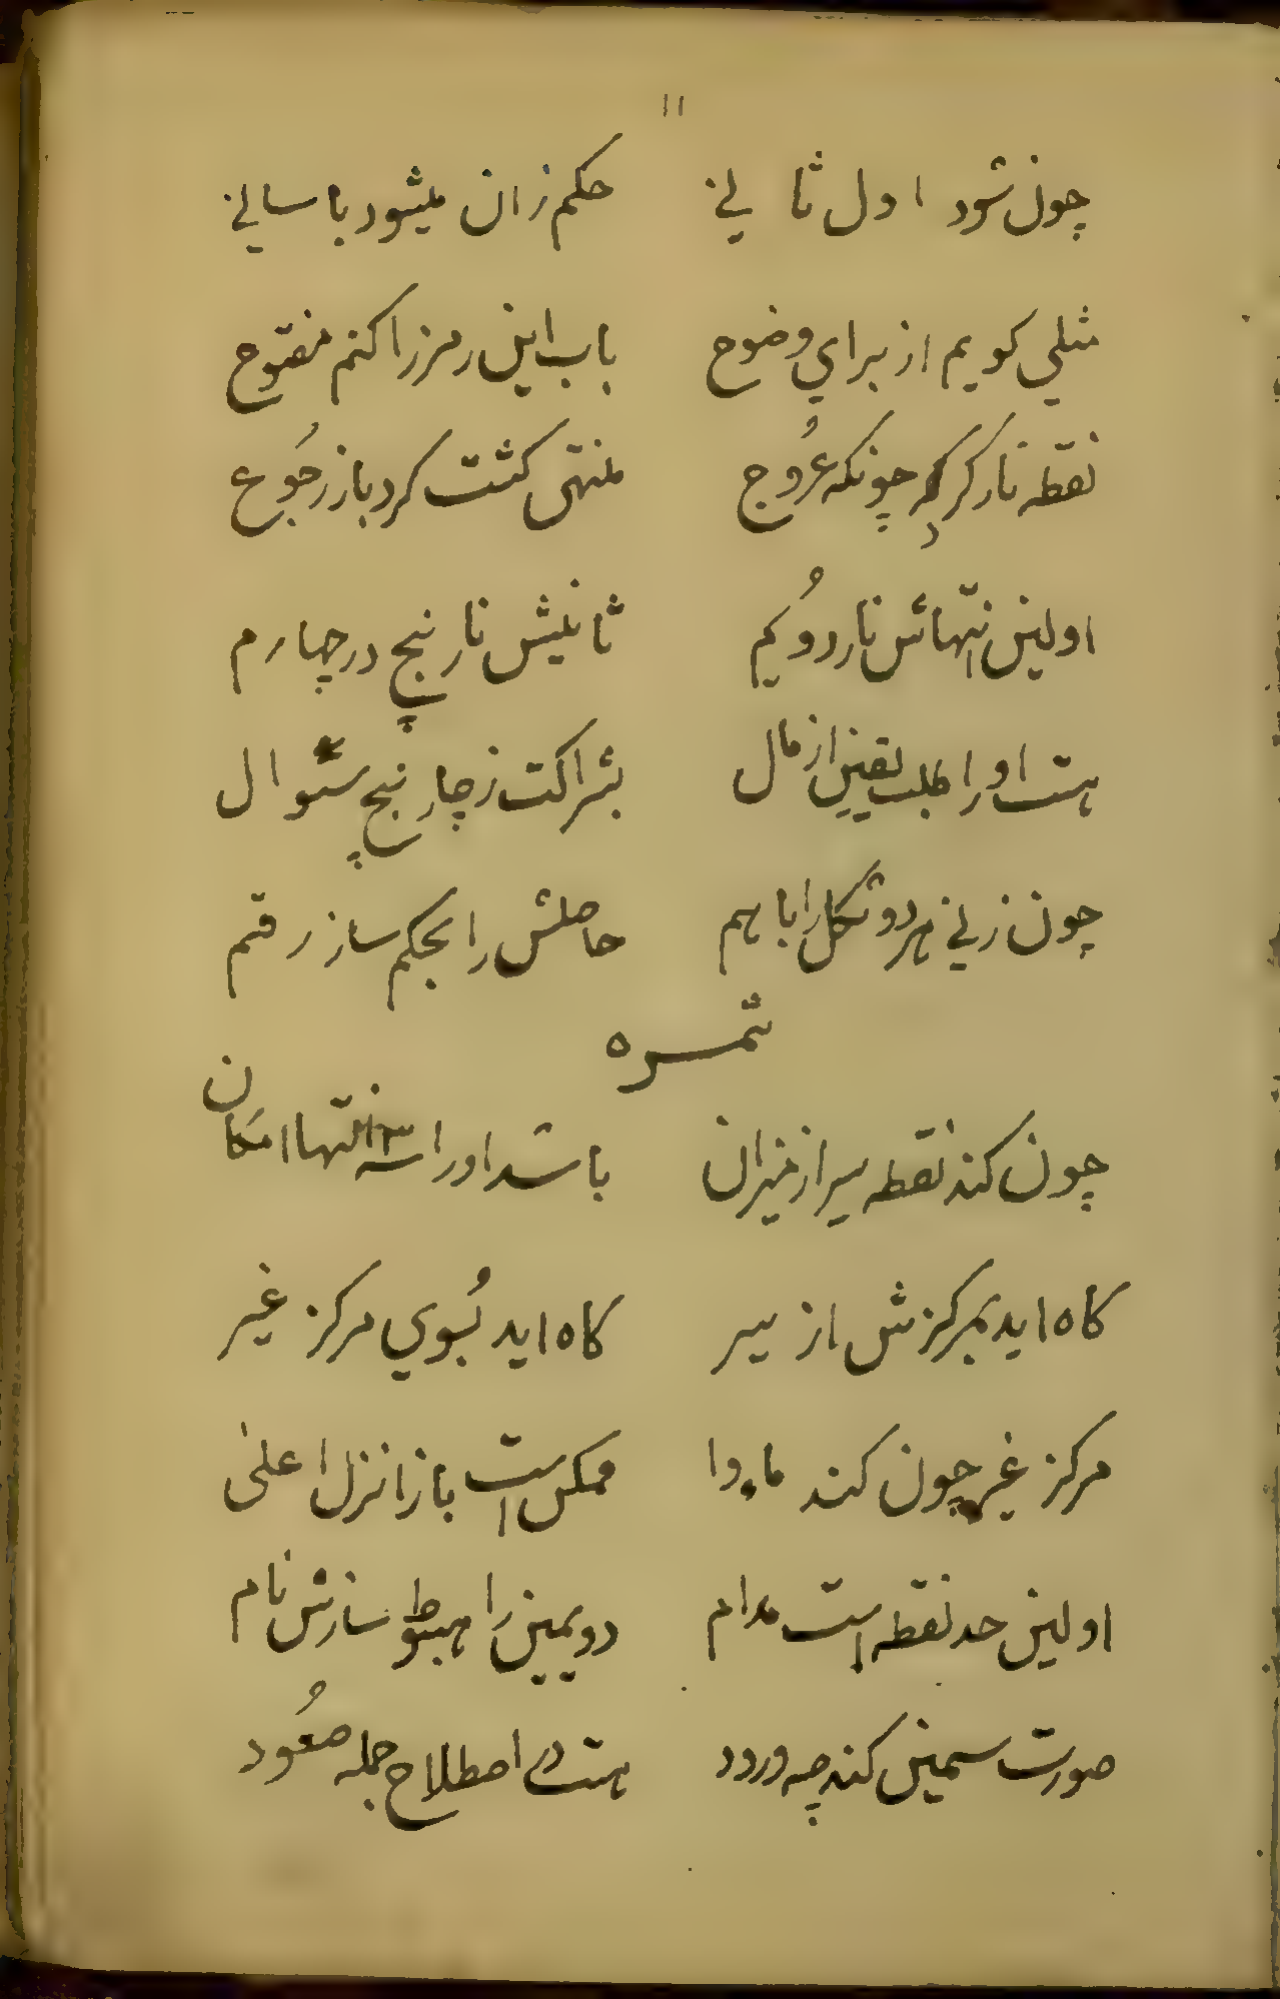 ۱۱
چون شود اول ثا نی حکم زان میشود باسانی
مثلی کویم از برای وضوح باب این رمز را کنم مفتوح
نقطه نار کرد چونکه عُروج منتهی کشت کرد باز رجُوع
اولین انتهائش نار دوُیم ثانیش نار پنج در چهارم
هست او را طلب یقین از مال بشراکت ز چار پنج سئوال
چون زنی هر دو شکل را با هم حاصلش را بحکم ساز رقم
ثمره
چون کند نقطه سیر از میزان باشد او را سه انتها امکان
کاه اید بمرکزش از سیر کاه اید بسُوی مرکز غیر
مرکز غیر چون کند ماوا ممکن است باز انزل اعلیٰ
اولین حد نقطه است مدام دویمین را هبوط سازش نام
صورت سیمین کند چه ورود هست در اصطلاح جمله صعُود